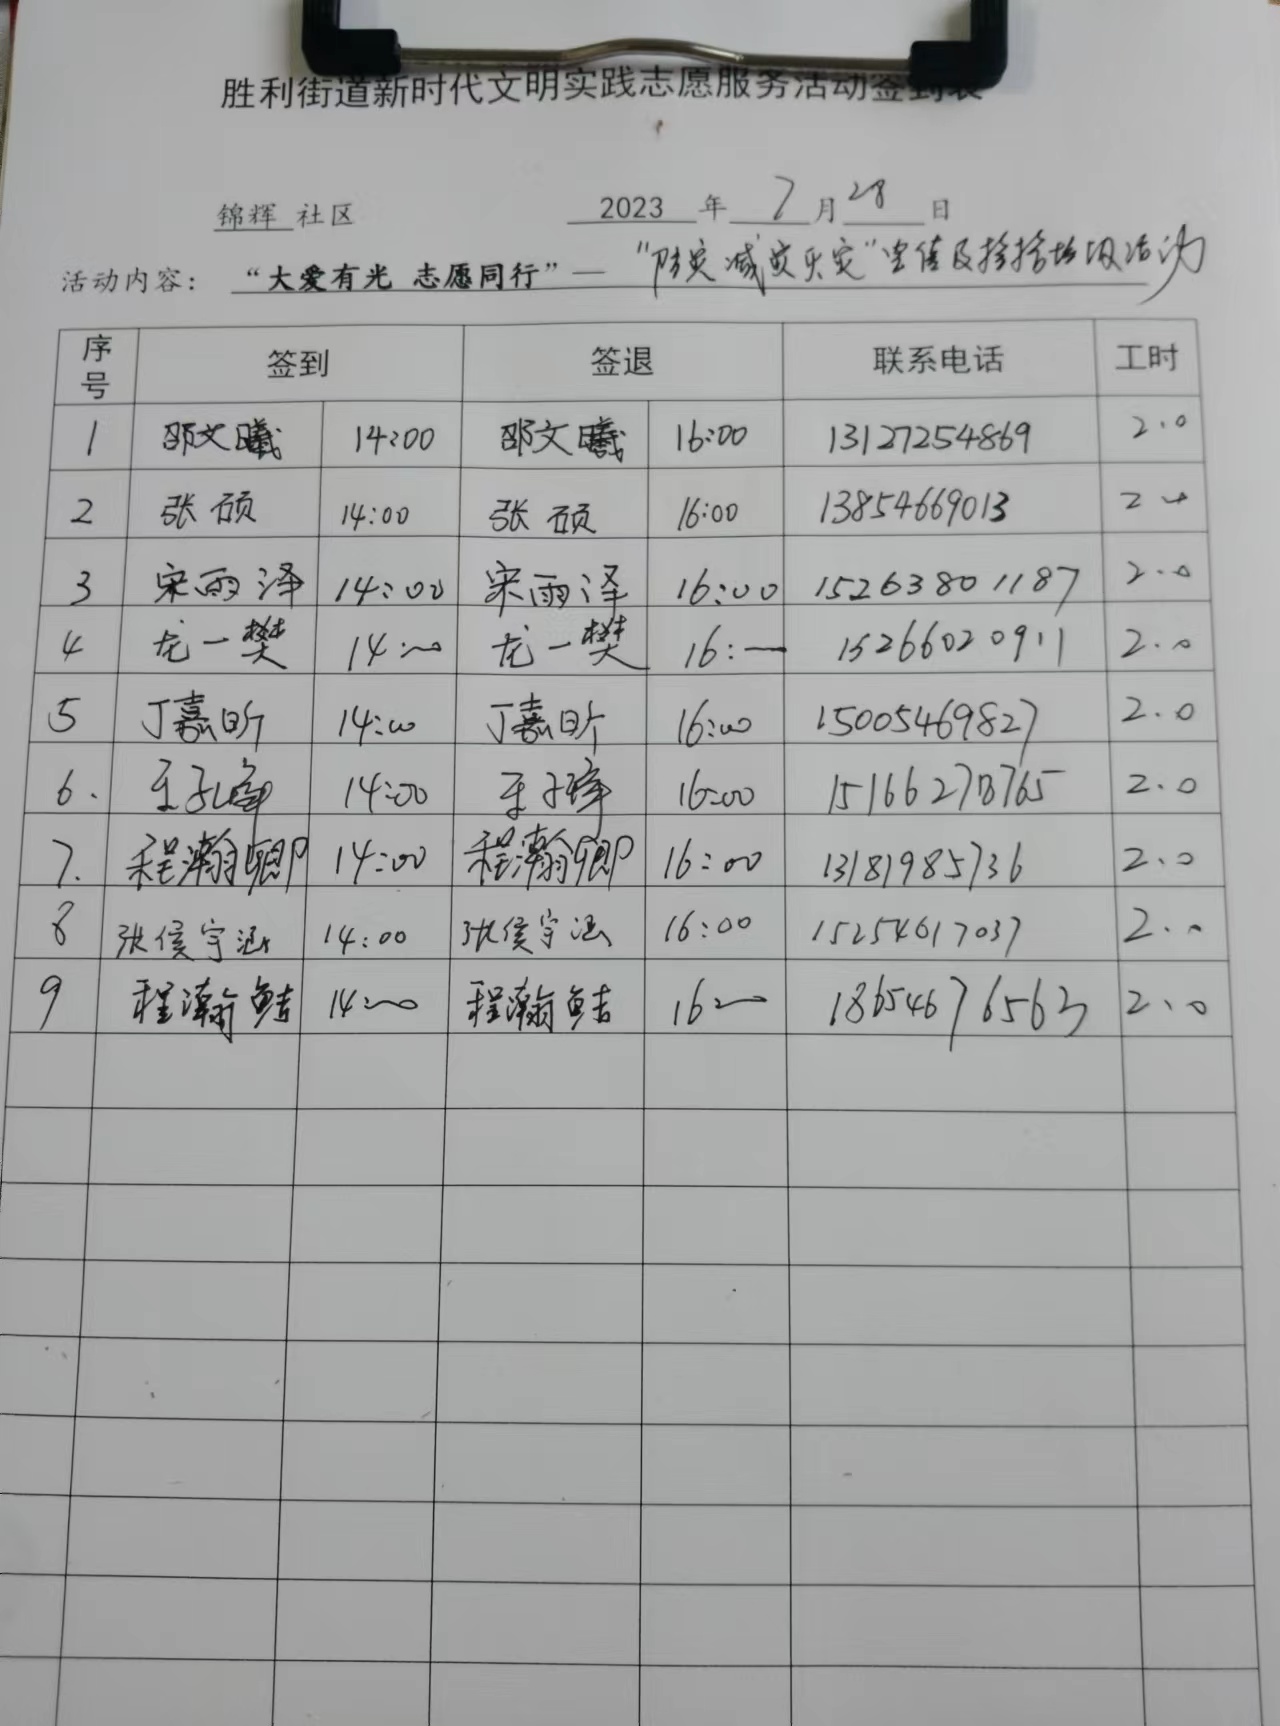 胜利街道新时代文明实践志愿服务活动签到表
锦辉 社区 2023 年 7 月 28 日
活动内容: “大爱有光 志愿同行”— “防灾减灾灭灾”宣传及捡拾垃圾活动
序号 签到 签退 联系电话 工时
1 邵文曦 14:00 邵文曦 16:00 13127254869 2.0
2 张硕 14:00 张硕 16:00 13854669013 2.0
3 宋雨泽 14:00 宋雨泽 16:00 15263801187 2.0
4 龙一樊 14:00 龙一樊 16:00 15266020911 2.0
5 丁嘉昕 14:00 丁嘉昕 16:00 15005469827 2.0
6. 王子 14:00 王子 16:00 15166278765 2.0
7. 程瀚卿 14:00 程瀚卿 16:00 13181985736 2.0
8 张侯宇涵 14:00 张侯宇涵 16:00 15254617037 2.0
9 程瀚鲒 14:00 程瀚鲒 16:00 18654676563 2.0